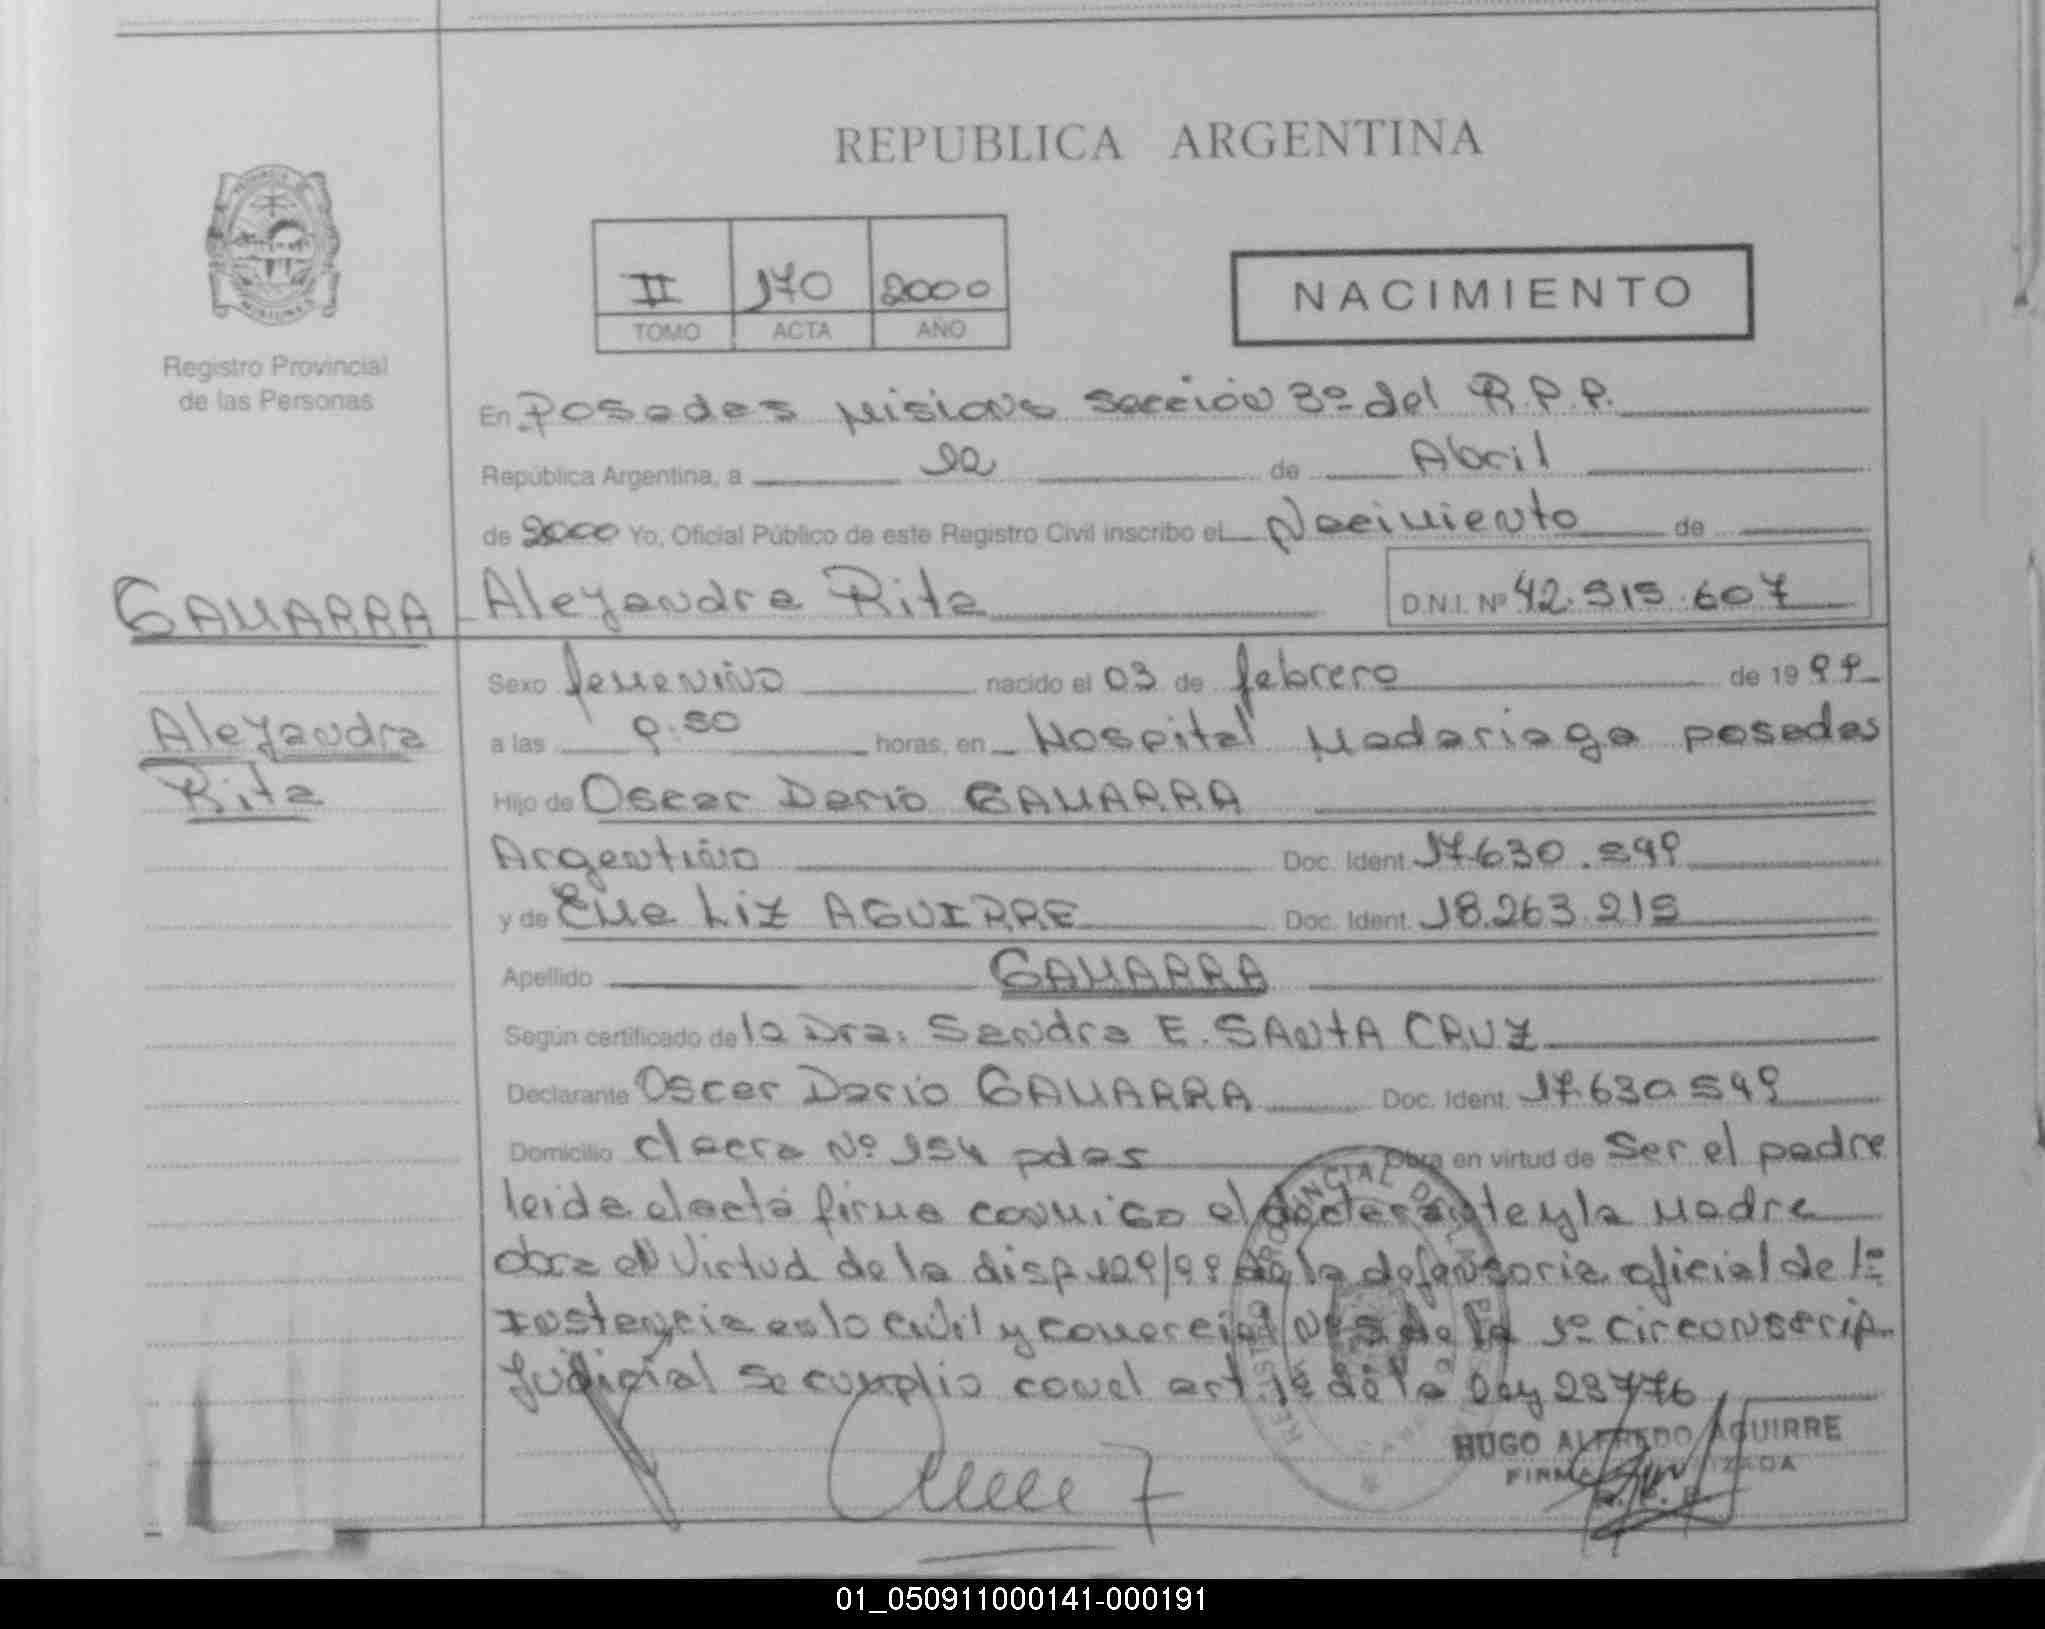 REPUBLICA ARGENTINA
II 170 2000
TOMO ACTA AÑO
NACIMIENTO
Registro Provincial
de las Personas
En Posadas Misiones Sección 3º del R.P.P.
República Argentina, a 12 de Abril
de 2000 Yo, Oficial Público de este Registro Civil inscribo el Nacimiento de
GAMARRA Alejandra Rita D.N.I. Nº 42.515.607
Alejandra
Rita
Sexo femenino nacido el 03 de febrero de 1999
a las 9.50 horas, en Hospital Madariaga posadas
Hijo de Oscar Dario GAMARRA
Argentino Doc. Ident. 17.630.549
y de Eme Liz AGUIRRE Doc. Ident. 18.263.215
Apellido GAMARRA
Según certificado de la Dra: Sandra E. SANTA CRUZ
Declarante Oscar Dario GAMARRA Doc. Ident. 17.630.549
Domicilio chacra Nº 154 pdas Obra en virtud de Ser el padre
leida el acta firma conmigo el declarante y la Madre
obra en Virtud de la disp 129/99 de la defensoria oficial de 1º
Instancia en lo civil y comercial de la 1º circonscrip.
Judicial se cumplio con el art 1º de la Ley 23776
HUGO ALFREDO AGUIRRE
FIRMA
01_050911000141-000191